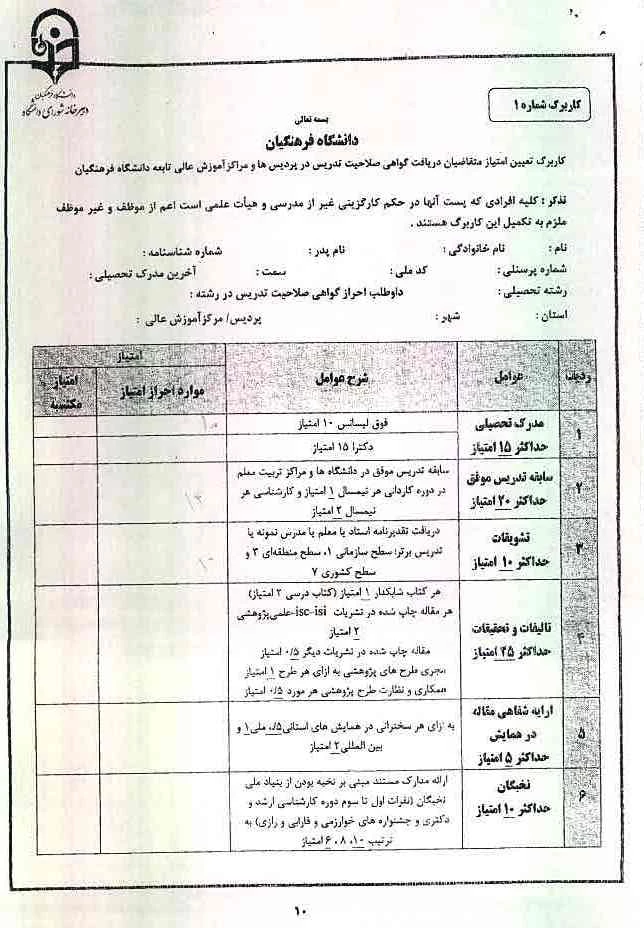 دانشگاه فرهنگیان
دبیرخانه شورای دانشگاه
کاربرگ شماره ۱
بسمه تعالی
دانشگاه فرهنگیان
کاربرگ تعیین امتیاز متقاضیان دریافت گواهی صلاحیت تدریس در پردیس ها و مراکز آموزش عالی تابعه دانشگاه فرهنگیان
تذکر : کلیه افرادی که پست آنها در حکم کارگزینی غیر از مدرسی و هیأت علمی است اعم از موظف و غیر موظف
ملزم به تکمیل این کاربرگ هستند .
نام : نام خانوادگی : نام پدر : شماره شناسنامه :
شماره پرسنلی : کد ملی : سمت : آخرین مدرک تحصیلی :
رشته تحصیلی : داوطلب احراز گواهی صلاحیت تدریس در رشته :
استان : شهر : پردیس/ مرکز آموزش عالی :
ردیف عوامل شرح عوامل امتیاز
موارد احراز امتیاز
امتیاز
مکتسبه
۱
مدرک تحصیلی
حداکثر ۱۵ امتیاز
فوق لیسانس ۱۰ امتیاز
دکترا ۱۵ امتیاز
۱۰
۲
سابقه تدریس موفق
حداکثر ۲۰ امتیاز
سابقه تدریس موفق در دانشگاه ها و مراکز تربیت معلم
در دوره کاردانی هر نیمسال ۱ امتیاز و کارشناسی هر
نیمسال ۲ امتیاز
۳
تشویقات
حداکثر ۱۰ امتیاز
دریافت تقدیرنامه استاد یا معلم یا مدرس نمونه یا
تدریس برتر: سطح سازمانی ۱، سطح منطقه‌ای ۳ و
سطح کشوری ۷
۱۰
۴
تالیفات و تحقیقات
حداکثر ۴۵ امتیاز
هر کتاب شابکدار ۱ امتیاز (کتاب درسی ۲ امتیاز)
هر مقاله چاپ شده در نشریات isc-isi-علمی‌پژوهشی
۲ امتیاز
مقاله چاپ شده در نشریات دیگر ۰/۵ امتیاز
مجری طرح های پژوهشی به ازای هر طرح ۱ امتیاز
همکاری و نظارت طرح پژوهشی هر مورد ۰/۵ امتیاز
۵
ارایه شفاهی مقاله
در همایش
حداکثر ۵ امتیاز
به ازای هر سخنرانی در همایش های استانی ۰/۵، ملی ۱ و
بین المللی ۲ امتیاز
۶
نخبگان
حداکثر ۱۰ امتیاز
ارائه مدارک مستند مبنی بر نخبه بودن از بنیاد ملی
نخبگان (نفرات اول تا سوم دوره کارشناسی ارشد و
دکتری و جشنواره های خوارزمی و فارابی و رازی) به
ترتیب ۱۰، ۸، ۶ امتیاز
۱۰